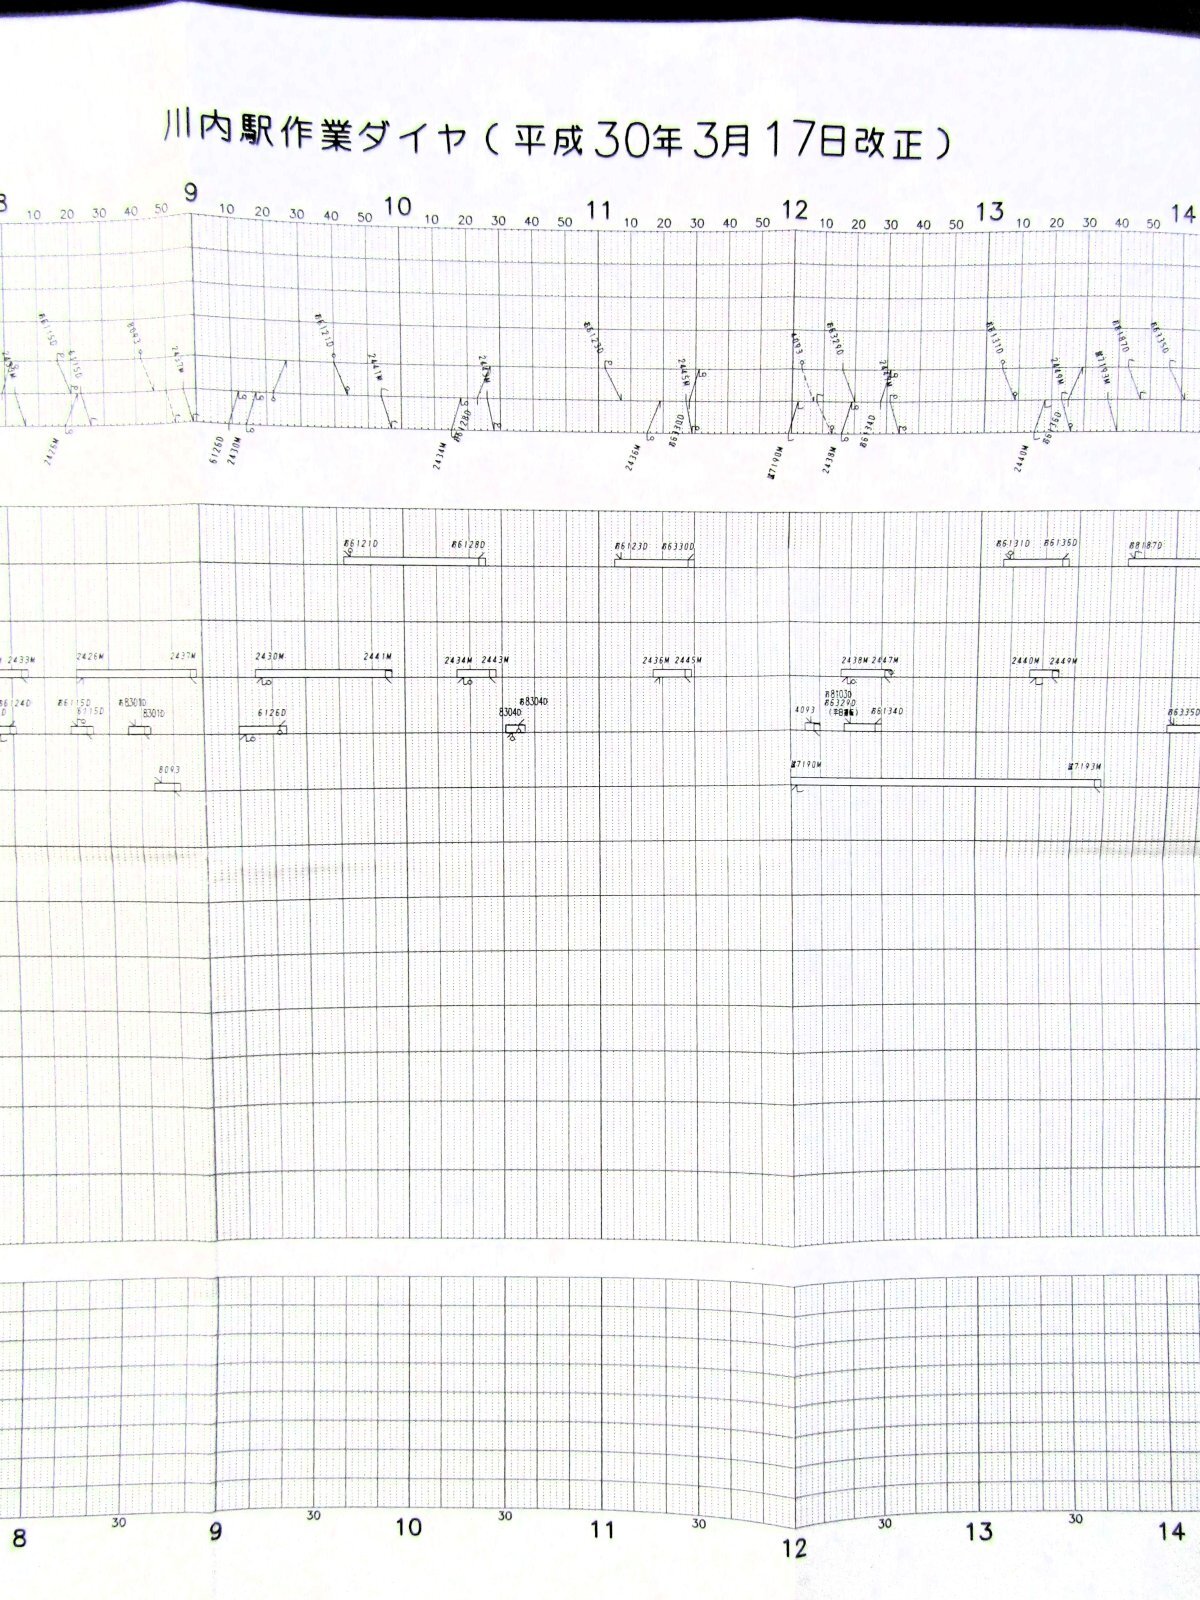 川内駅作業ダイヤ(平成30年3月17日改正)
8 9 10 11 12 13 14
10 20 30 40 50 10 20 30 40 50 10 20 30 40 50 10 20 30 40 50 10 20 30 40 50 10 20 30 40 50
お6115D 6115D 8093 2437M お6121D 2441M 2443M お6123D 2445M 4093 お6329D 2447M お6131D 2449M 試7193M お8187D お6335D
2426M 6126D 2430M 2434M お6128D 2436M お6330D 試7190M 2438M お6134D 2440M お6136D
お6121D お6128D お6123D お6330D お6131D お6136D お8187D
2433M 2426M 2437M 2430M 2441M 2434M 2443M 2436M 2445M 2438M 2447M 2440M 2449M
お6124D お6115D 6115D お8301D 8301D 6126D 8304D お8304D 4093 お8103D お6329D お6134D お6335D
8093 試7190M 試7193M
30 30 30 30 30 30
8 9 10 11 12 13 14